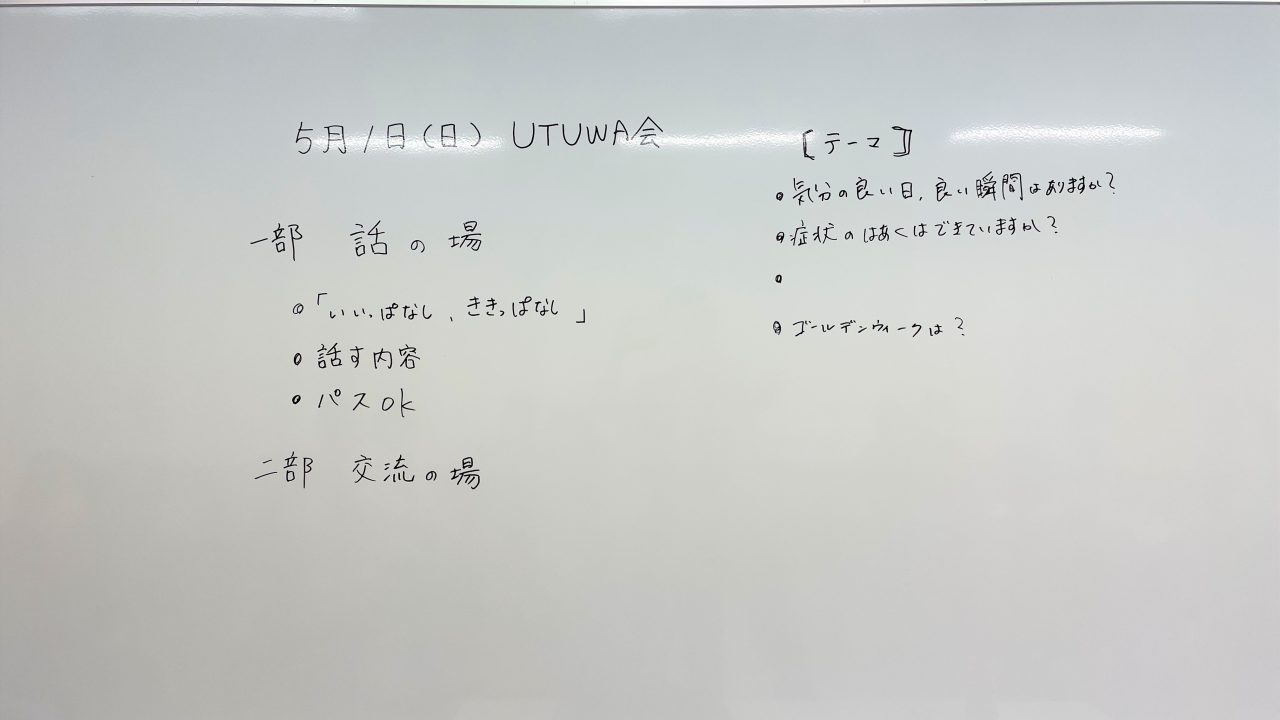 5月1日(日) UTUWA会
一部 話の場
「いいっぱなし、ききっぱなし」
話す内容
パスok
二部 交流の場
【テーマ】
気分の良い日、良い瞬間はありますか?
症状のはあくはできていますか?
ゴールデンウィークは?